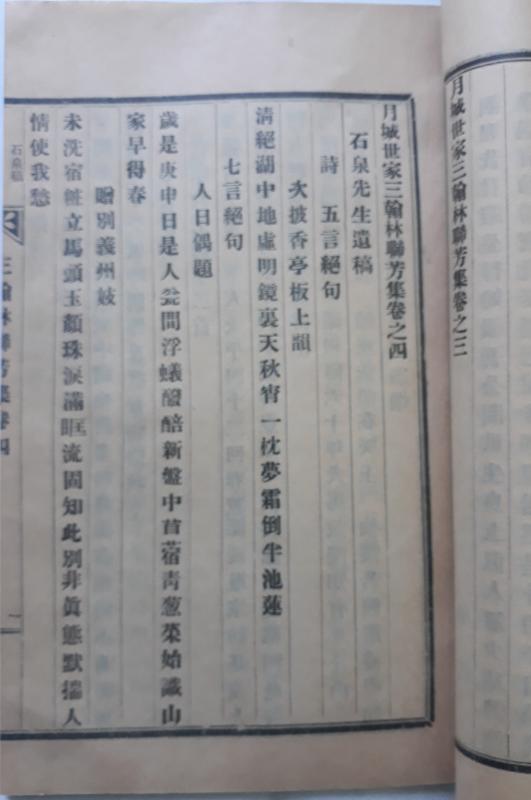 月城世家三翰林聯芳集卷之三
月城世家三翰林聯芳集卷之四
石泉先生遺稿
詩　五言絕句
次披香亭板上韻
清絕湖中地虛明鏡裏天秋宵一枕夢霜倒半池蓮
七言絕句
人日偶題
歲是庚申日是人瓮間浮蟻醱醅新盤中苜蓿青葱菜始識山
家早得春
贈別義州妓
未洗宿粧立馬頭玉顏珠淚滿眶流固知此別非眞態默揣人
情使我愁
石泉稿
三翰林聯芳集卷四
一